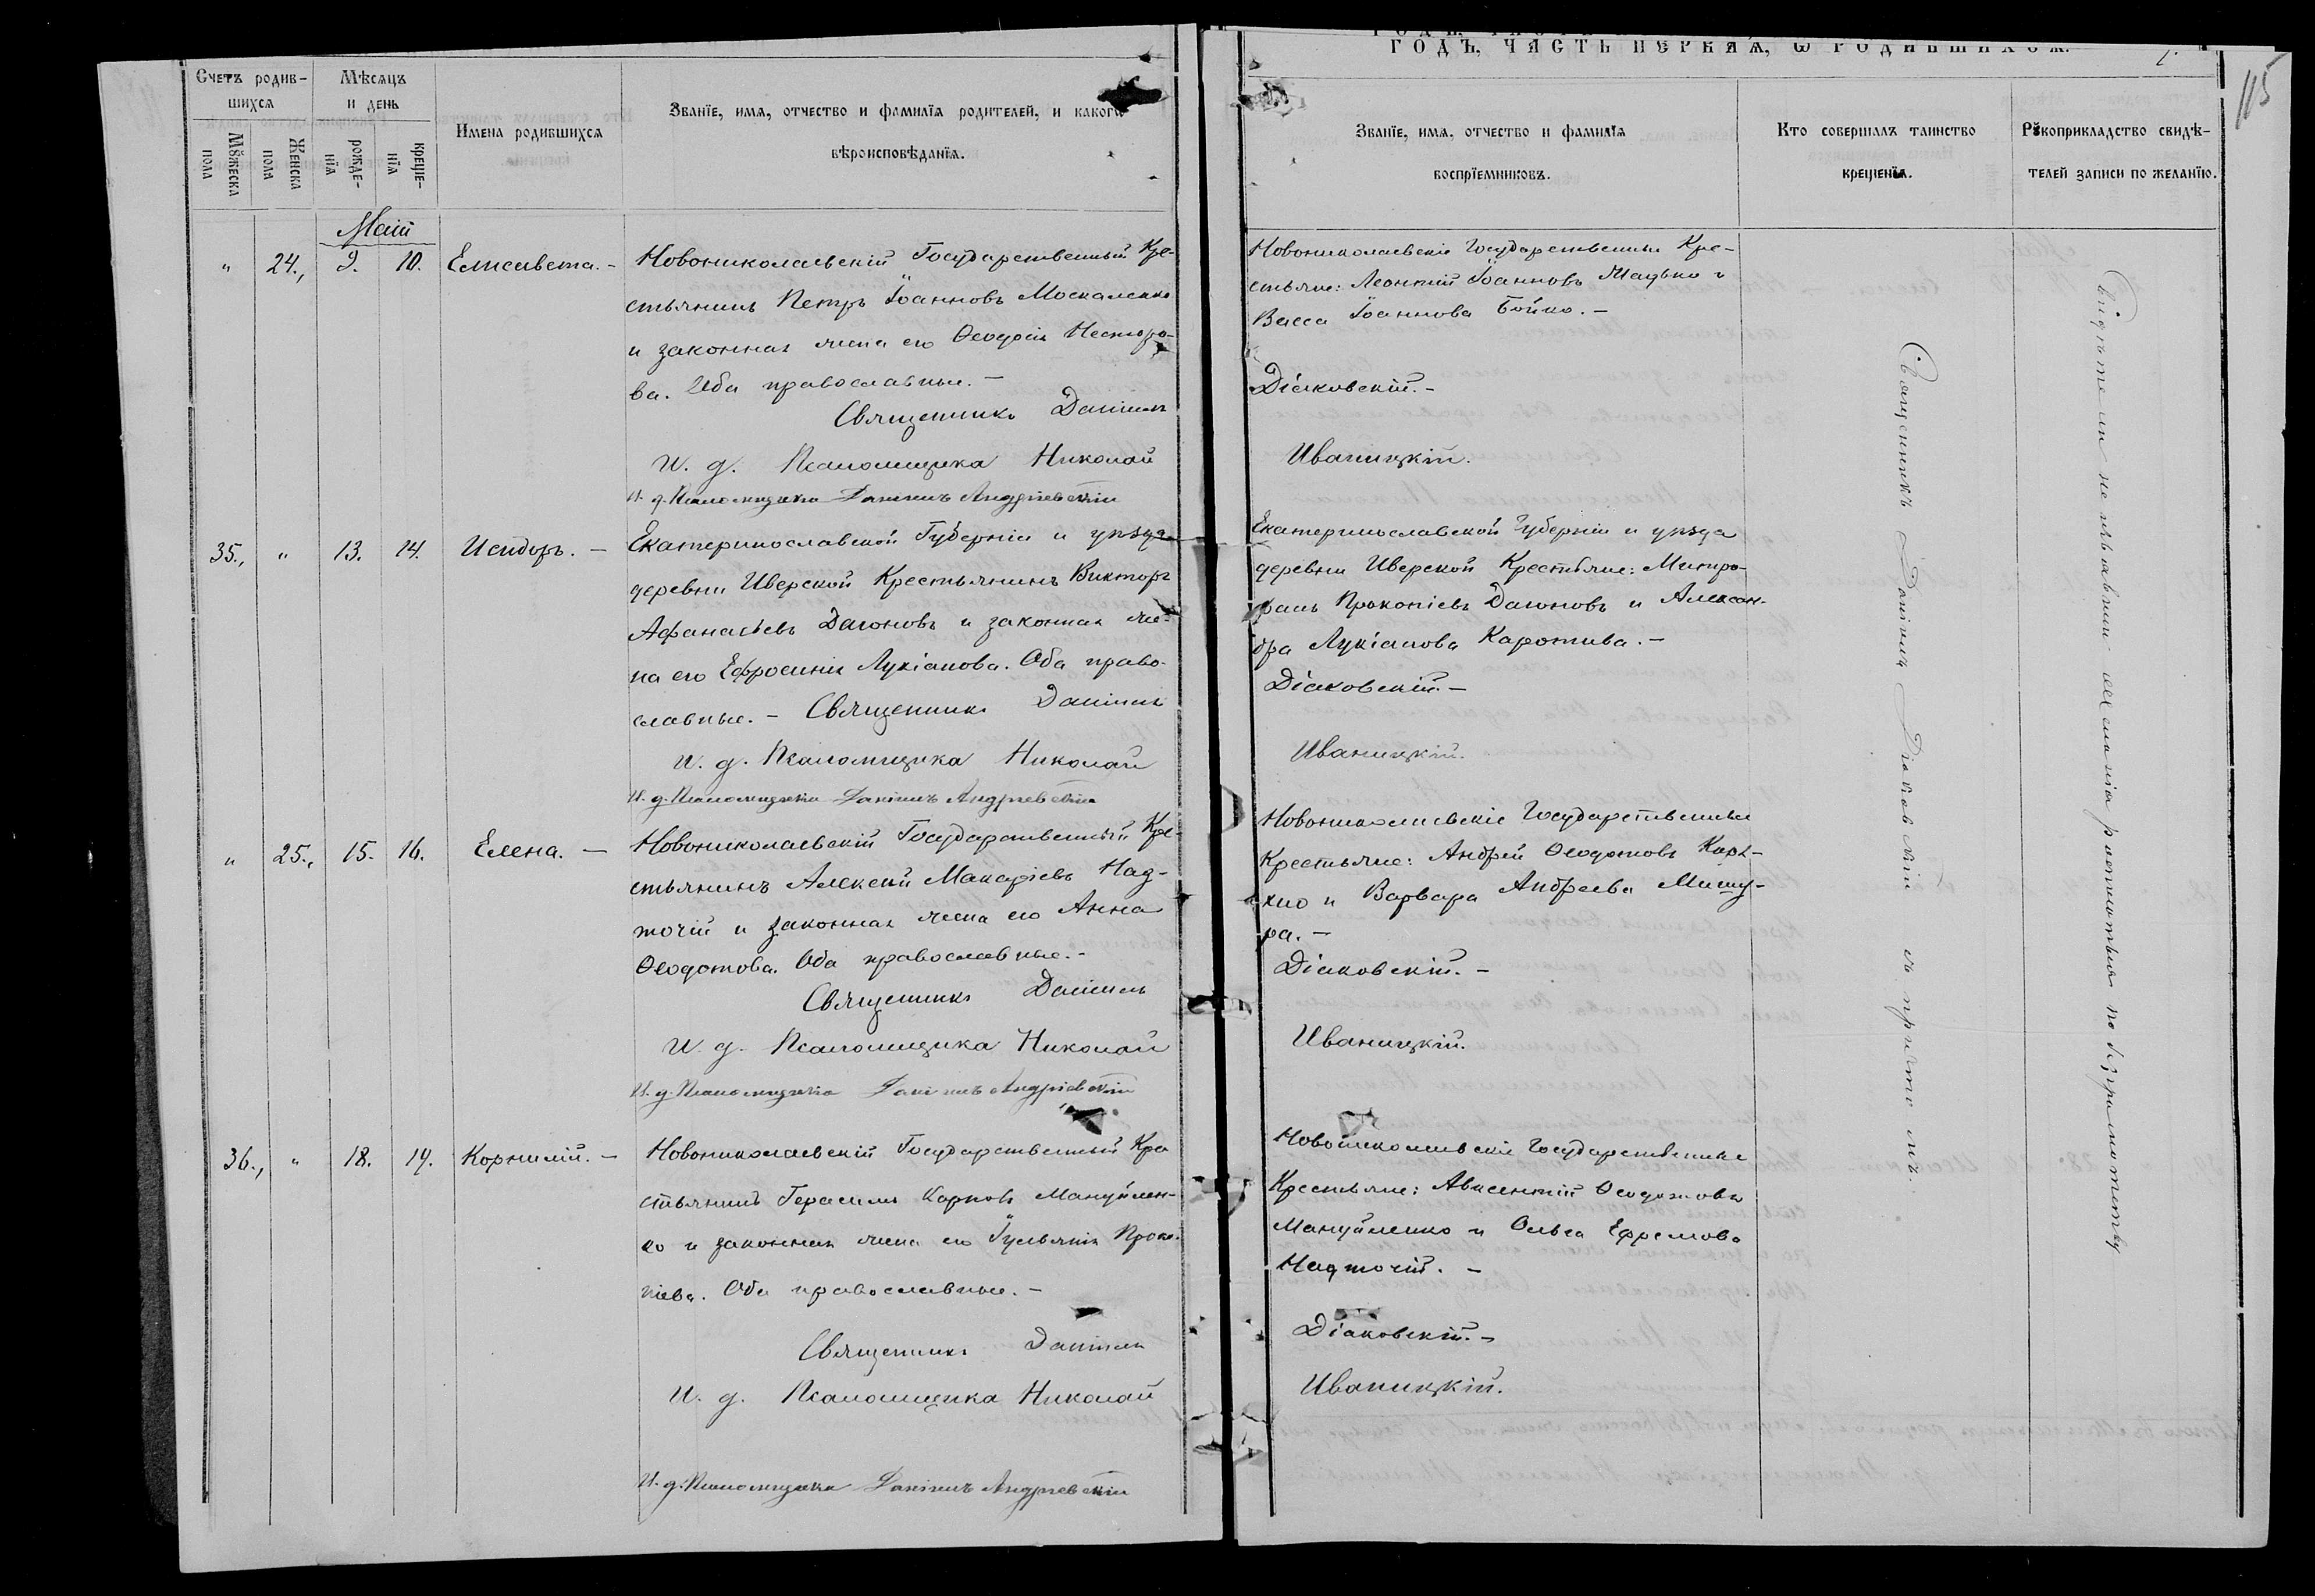 ГОДЪ, ЧАСТЬ ПЕРВАЯ, Ѡ РОДИВШИХСЯ.
115
Счетъ родив-
шихся
Мѣсяцъ
и день
Имена родившихся
Званїе, имя, отчество и фамилїя родителей, и какого
вѣроисповѣданїя.
Мꙋжеска
пола
Женска
пола
рожде-
нїя
крещіе-
нїя
Званїе, имя, отчество и фамилїя
воспрїемниковъ.
Кто совершалъ таинство
крещенїя.
Рꙋкоприкладство свидѣ-
телей записи по желанїю.
Май
„ 24., 9. 10. Елисавета. –
Новониколаевскій Государственный Кре-
стьянинъ Петръ Іоанновъ Москаленко
и законная жена его Ѳеодосія Несторо-
ва. Оба православные. –
Священникъ Даніилъ
И. д. Псаломщика Николай
И. д. Псаломщика Даніилъ Андріевскій
Новониколаевскіе Государственные Кре-
стьяне: Леонтій Іоанновъ Мацько и
Васса Іоаннова Бойко. –
Діаковскій. –
Иваницкій.
35., „ 13. 14. Исидоръ. –
Екатеринославской Губерніи и уѣзда
деревни Иверской Крестьянинъ Викторъ
Афанасьевъ Дагоновъ и законная же-
на его Ефросинія Лукіанова. Оба право-
славные. – Священникъ Даніилъ
И. д. Псаломщика Николай
И. д. Псаломщика Даніилъ Андріевскій
Екатеринославской Губерніи и уѣзда
деревни Иверской Крестьяне: Митро-
фанъ Прокопіевъ Дагоновъ и Алексан-
дра Лукіанова Каротива. –
Діаковскій. –
Иваницкій.
„ 25., 15. 16. Елена. –
Новониколаевскій Государственный Кре-
стьянинъ Алексій Макаріевъ Над-
точій и законная жена его Анна
Ѳеодотова. Оба православные. –
Священникъ Даніилъ
И. д. Псаломщика Николай
И. д. Псаломщика Даніилъ Андріевскій
Новониколаевскіе Государственные
Крестьяне: Андрей Ѳеодотовъ Карх-
но и Варвара Андреева Мишу-
ра. –
Діаковскій. –
Иваницкій.
36., „ 18. 19. Корнилій. –
Новониколаевскій Государственный Кре
стьянинъ Герасимъ Карповъ Мануйлен-
ко и законная жена его Іульянія Проко-
піева. Оба православные. –
Священникъ Даніилъ
И. д. Псаломщика Николай
И. д. Псаломщика Даніилъ Андріевскій
Новониколаевскіе Государственные
Крестьяне: Авксентій Ѳеодотовъ
Мануйленко и Ольга Ефремова
Надточій. –
Діаковскій. –
Иваницкій.
Священникъ Даніилъ Діаковскій съ причтомъ.
Свидѣтели не изъявили желанія росписаться по безграмотству